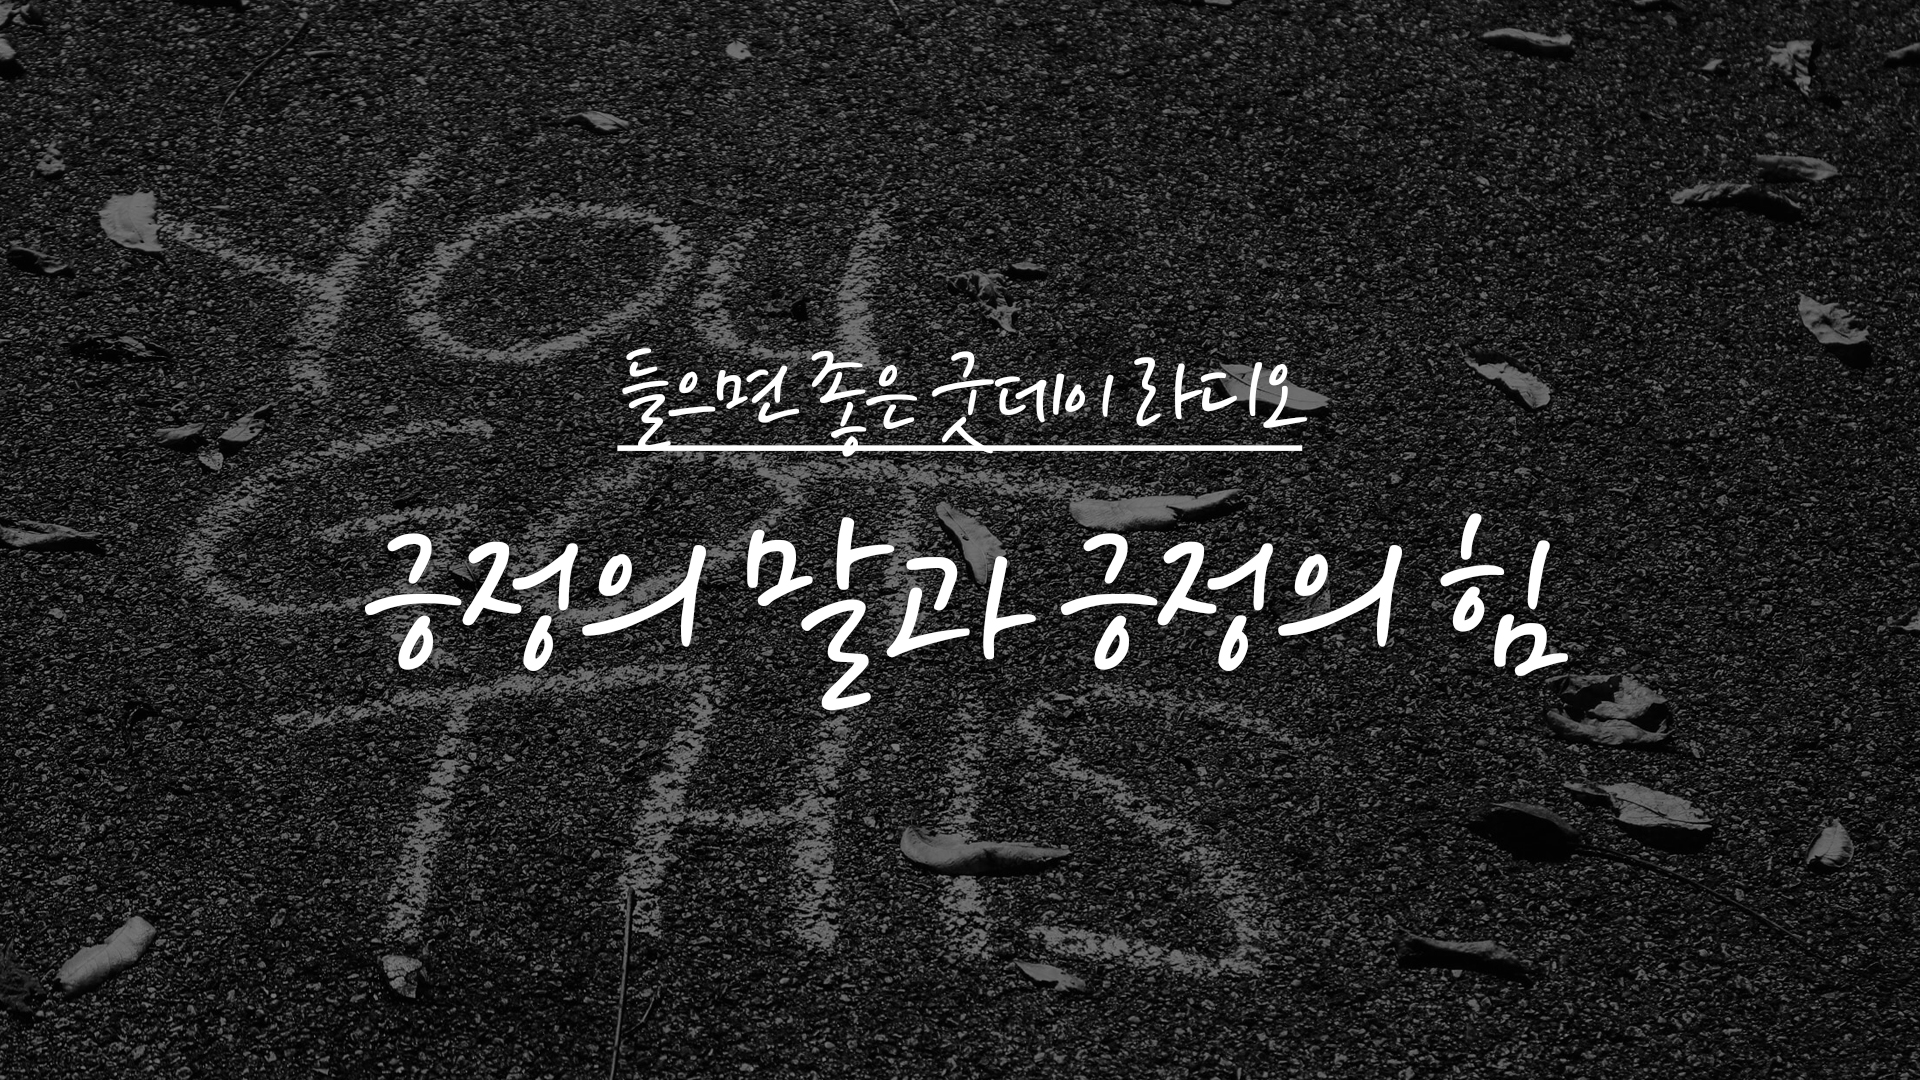 YOU
들으면 좋은 굿데이 라디오
GOT
긍정의 말과 긍정의 힘
THIS